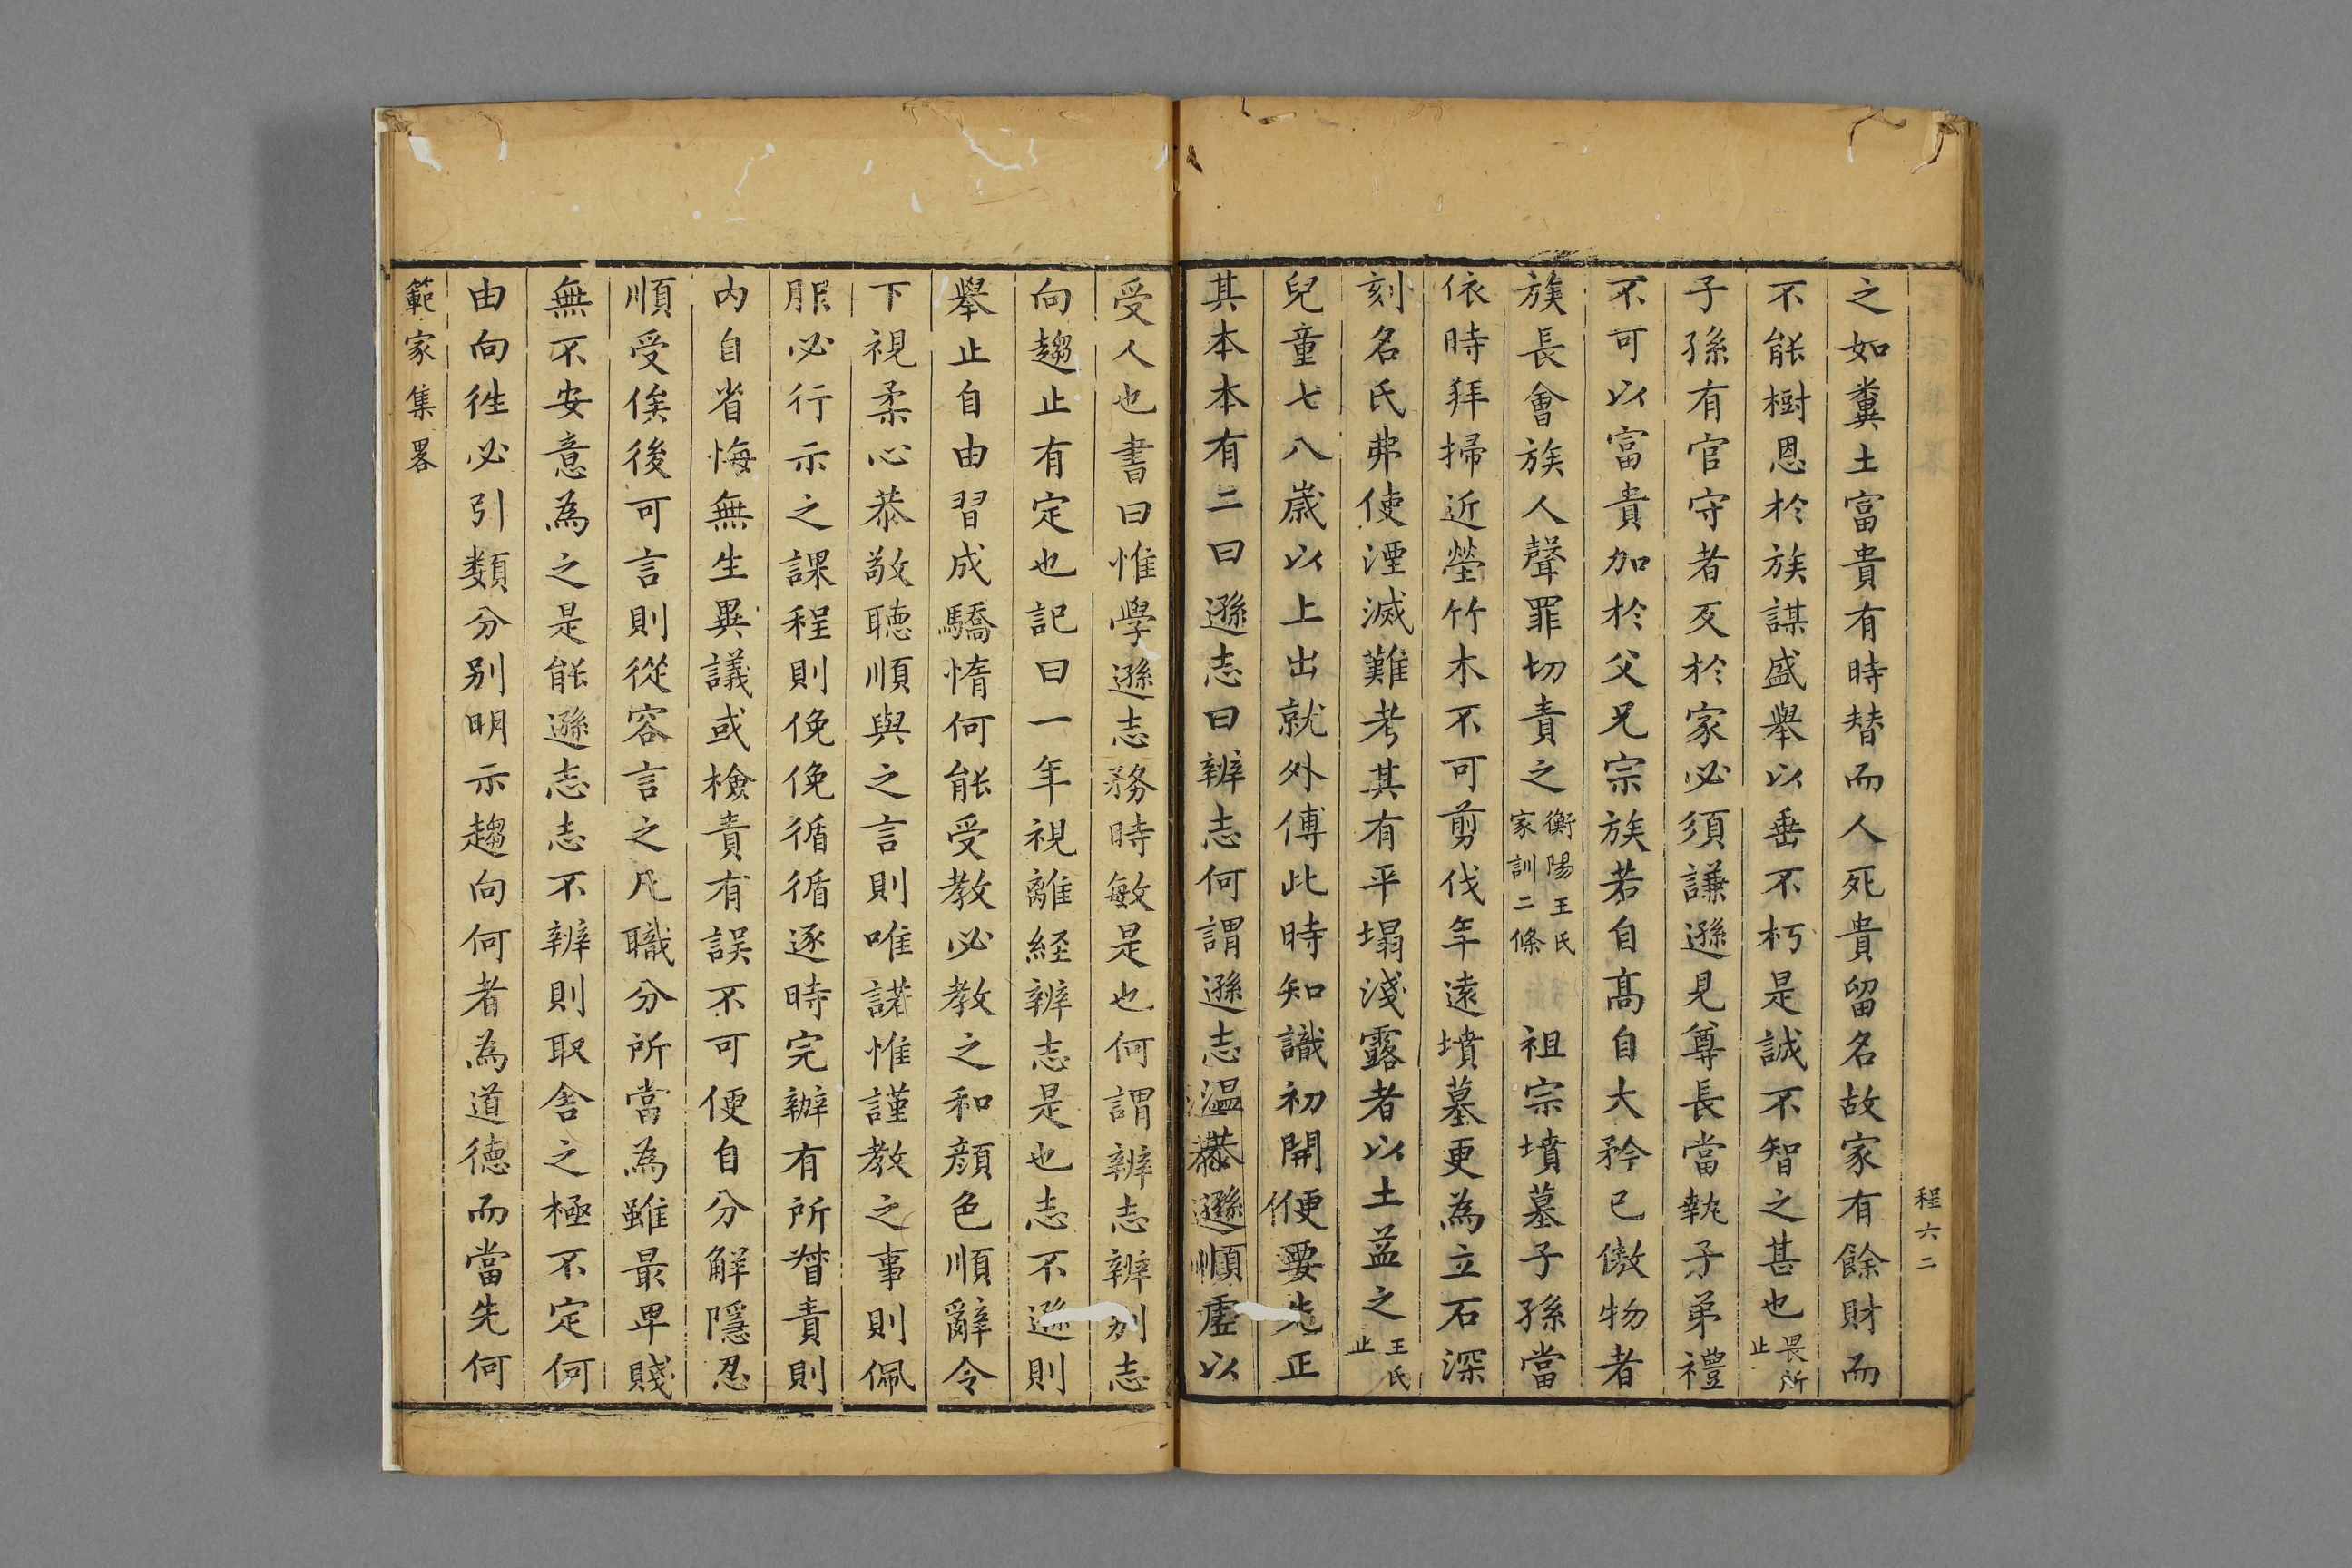 程六二
之如糞土富貴有時替而人死貴留名故家有餘財而
不能樹恩於族謀盛舉以垂不朽是誠不智之甚也畏所止
子孫有官守者反於家必須謙遜見尊長當執子弟禮
不可以富貴加於父兄宗族若自髙自大矜己傲物者
族長會族人聲罪切責之衡陽王氏家訓二條 祖宗墳墓子孫當
依時拜掃近塋竹木不可剪伐年遠墳墓更為立石深
刻名氏弗使湮滅難考其有平塌淺露者以土益之王氏止
兒童七八歲以上出就外傅此時知識初開便要先正
其本本有二曰遜志曰辨志何謂遜志溫恭遜順虛以
受人也書曰惟學遜志務時敏是也何謂辨志辨别志
向趨止有定也記曰一年視離経辨志是也志不遜則
舉止自由習成驕惰何能受教必教之和顔色順辭令
下視柔心恭敬聽順與之言則唯諾惟謹教之事則佩
服必行示之課程則俛俛循循逐時完辦有所督責則
内自省悔無生異議或檢責有誤不可便自分解隱忍
順受俟後可言則從容言之凡職分所當為雖最卑賤
無不安意為之是能遜志志不辨則取舍之極不定何
由向徃必引類分别明示趨向何者為道德而當先何
範家集畧